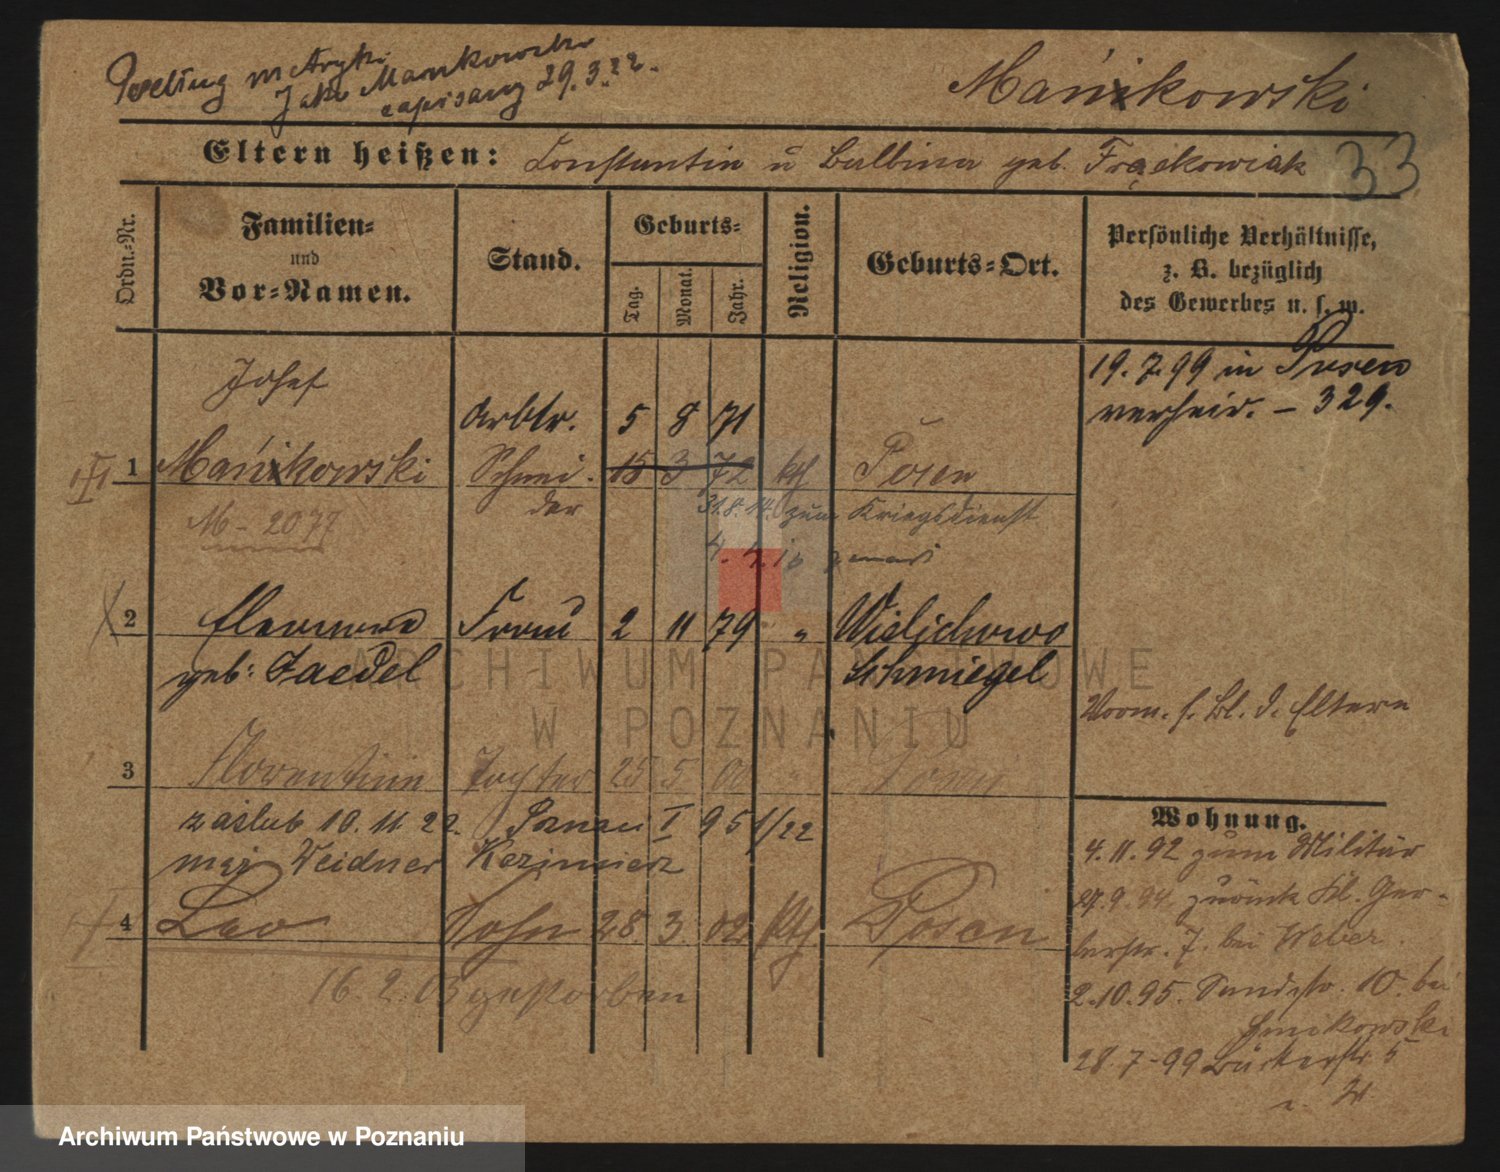 według metryki
jako Mankowski
zapisany 29.3.22.
Mańkowski
Eltern heißen: Constantin u Balbina geb. Frąckowiak
33
Ordn.-Nr.
Familien-
und
Vor-Namen.
Stand.
Geburts-
Tag.
Monat.
Jahr.
Religion.
Geburts-Ort.
Persönliche Verhältnisse,
z. B. bezüglich
des Gewerbes u. s. w.
19. 7. 99 in Posen
verheir. – 329.
Josef
Arbtr. 5 8 71
1 Mańkowski Schnei- 15 3 72 kth Posen
der
M – 2077
31.8.14. zum Kriegsdienst
2 Eleonore Frau 2 11 79 " Wielichowo
geb: Jaedel Schmiegel
Vorm. s. Bl. d. Eltern
3 Florentine Tochter 25 5 00 " Posen
zaślub 10. 11. 22. Poznań I 951/22
mąż Weidner Kazimierz
4 Leo Sohn 28. 3. 02 kth Posen
16. 2. 03 gestorben
Wohnung.
4. 11. 92 zum Militär
27. 9. 94 zurück Kl. Ger-
berstr. 7. bei Weber.
2. 10. 95. Sandstr. 10. bei
28. 7 - 99 Bäckerstr. 5
ARCHIWUM PAŃSTWOWE
W POZNANIU
Archiwum Państwowe w Poznaniu